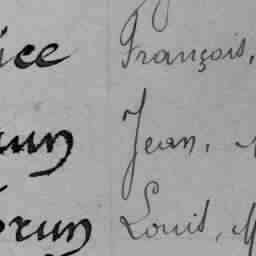 ice François,
un Jean,
brun Louis, M